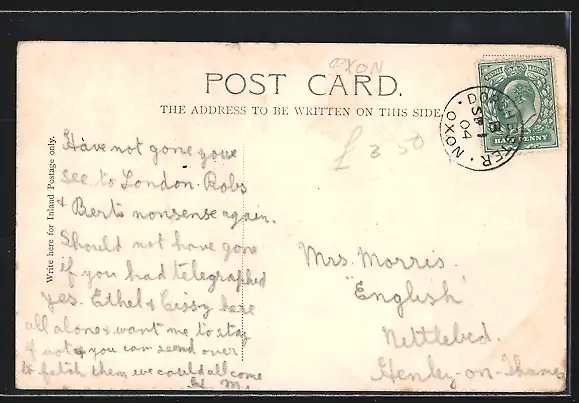 OXON
POST CARD.
THE ADDRESS TO BE WRITTEN ON THIS SIDE.
Write here for Inland Postage only.
HALF PENNY
DORCHESTER
SP 8
04
OXON
£3 50
Have not gone you
see to London. Robs
& Berts nonsense again.
Should not have gone
if you had telegraphed
yes. Ethel & Cissy here
all alone & want me to stay
if not & you can send over
to fetch them we could all come
M.
Mrs. Morris.
"English"
Nettlebed.
Henley-on-Thames